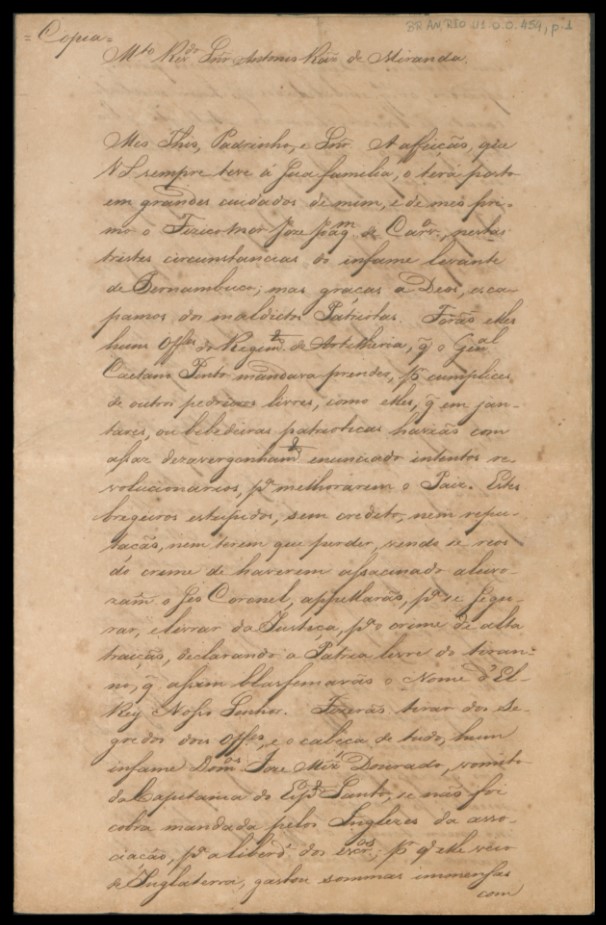 = Copia =
BR AN,RIO UI.0.0.459, p.1
M.to Rev.do Snr. Antonio Roiz de Miranda.
Meo Thio, Padrinho, e Snr. A afeição, que
V S sempre teve á sua familia, o terá posto
em grandes cuidados de mim, e de meo pri-
mo o Fizico Mor Joze Joaq.m de Carv.o, nestas
tristes circunstancias do infame levante
de Pernambuco; mas graças a Deos, esca-
pamos dos maldictos Pátriotas. Forão elles
huns Off.es do Regim.to de Artelheria, q̃ o Gen.al
Caetano Pinto mandara prender, p.r cumplices
de outros pedreiros livres, como elles, q̃ em jan-
tares, ou bebedeiras patrioticas havião com
assaz dezavergonham.to enunciado intentos re-
volucionarios, p.a melhorarem o Paiz. Estes
bregeiros estupidos, sem credito, nem repu-
tação, nem terem que perder, vendo se reos
do crime de haverem assacinado aleivo-
zam.e o seo Coronel, appellarão, p.a se segu-
rar, e livrar da Justiça, p.a o crime de alta
traição, declarando a Pátria livre do tiran-
no, q̃ assim blasfemavão o Nome d'El-
Rey Nosso Senhor. Fizerão tirar dos se-
gredos dous Off.es, e o cabeça de tudo, hum
infame Dom.os Joze Miz Dourado, vomito
da Capitania do Esp.to Santo, se não foi
cobra mandada pelos Inglezes da asso-
ciação, p.a a liberd.e dos escr.os; p.r q̃ elle veio
de Inglaterra, gastou sommas immensas
com